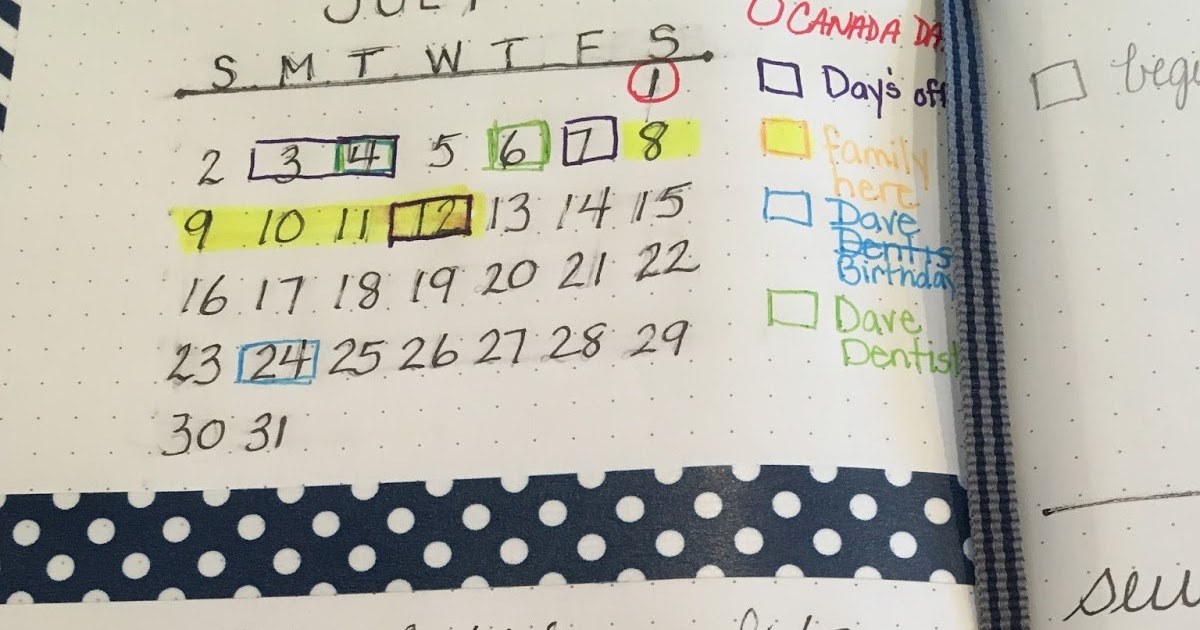 JULY
S M T W T F S
1
2 3 4 5 6 7 8
9 10 11 12 13 14 15
16 17 18 19 20 21 22
23 24 25 26 27 28 29
30 31
CANADA DA
Day's off
family
here
Dave
Dentis
Birthday
Dave
Dentist
begi